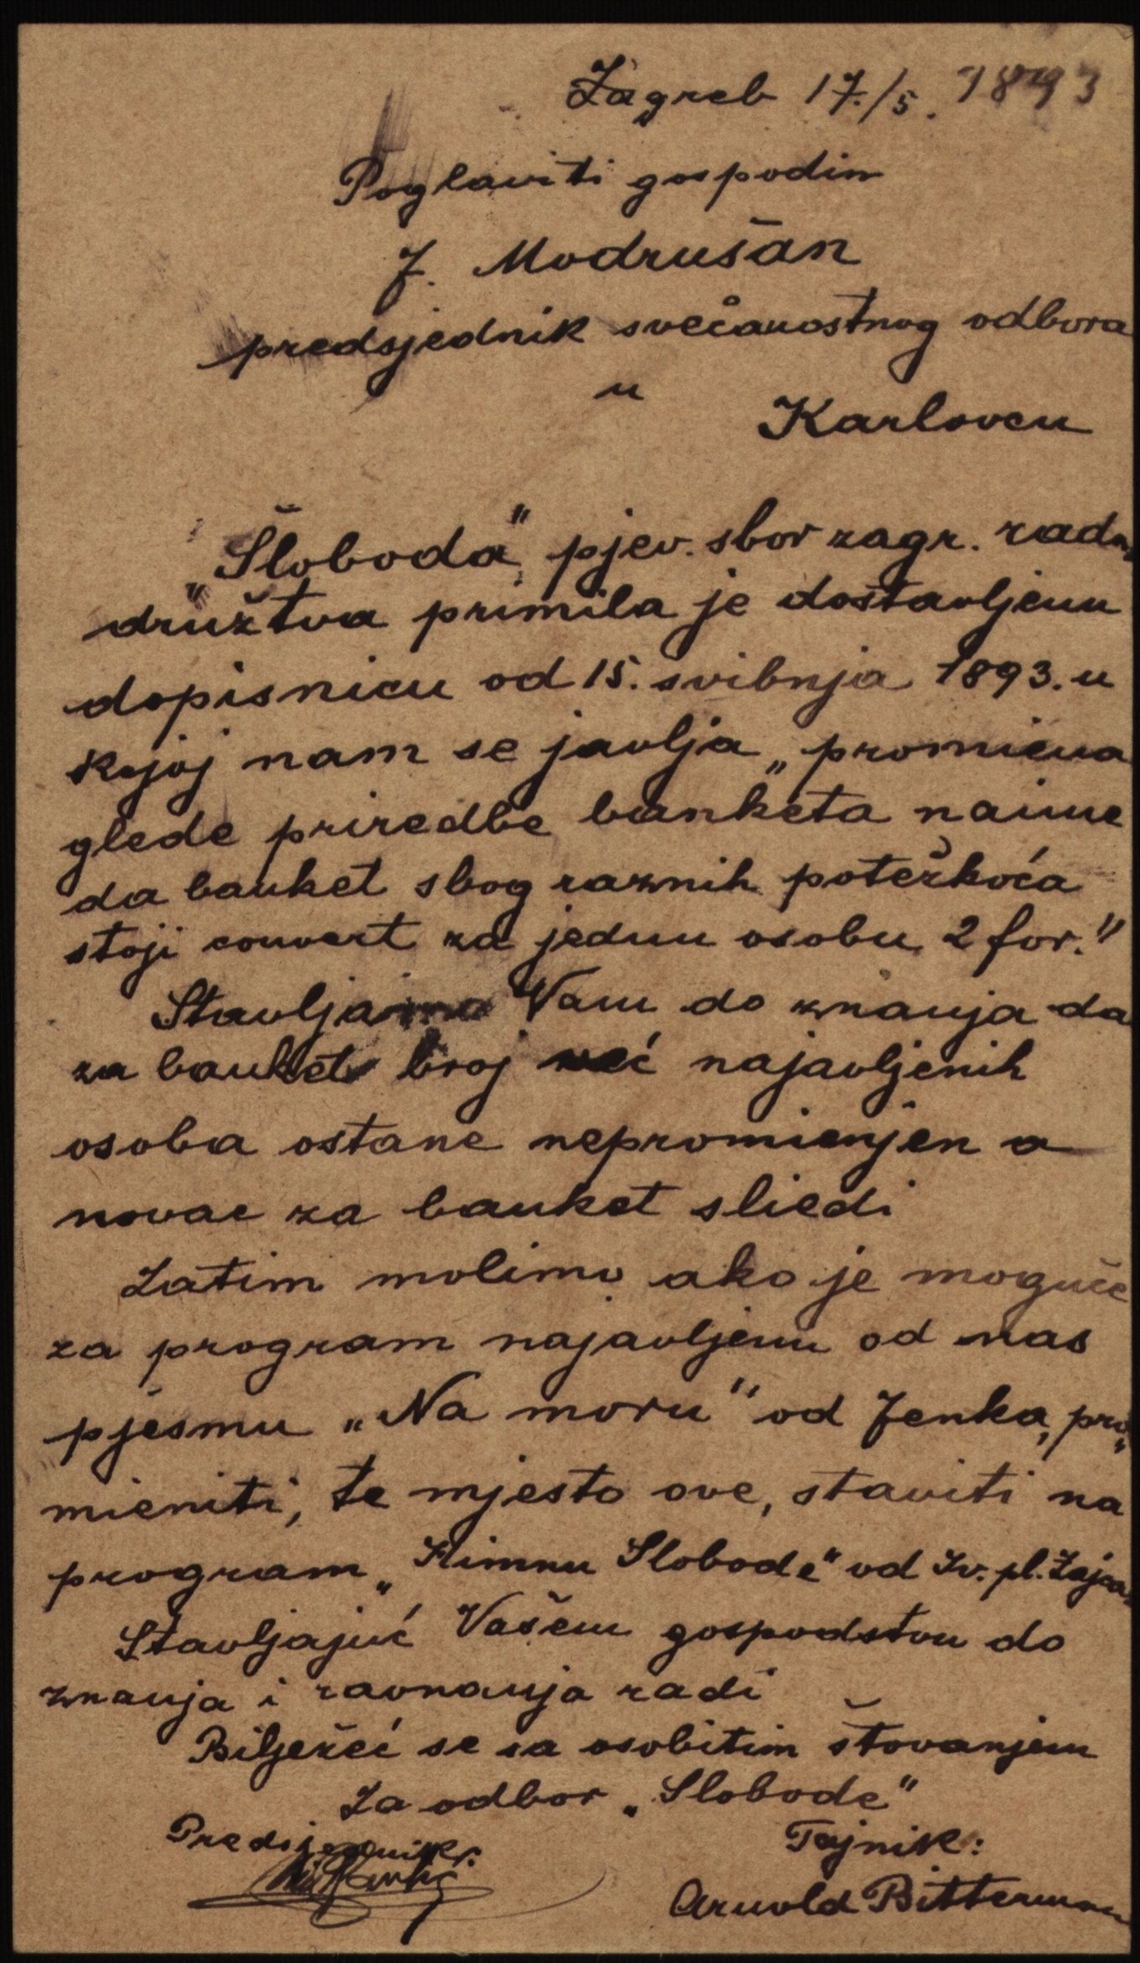 Zagreb 17./5. 1893
Poglaviti gospodin
J. Modrušan
predsjednik svečanostnog odbora
u
Karlovcu
„Sloboda” pjev. sbor zagr. radn.
družtva primila je dostavljenu
dopisnicu od 15. svibnja 1893. u
kojoj nam se javlja „promiena
glede priredbe banketa naime
da banket sbog raznih poteškoća
stoji couvert za jednu osobu 2 for.”
Stavljamo Vam do znanja da
za banket broj već najavljenih
osoba ostane nepromienjen a
novac za banket sliedi
Zatim molimo ako je moguće
za program najavljenu od nas
pjesmu „Na moru” od Jenka, pro„
mieniti, te mjesto ove, staviti na
program „Himnu Slobode” od Iv. pl. Zajca.
Stavljajuć Vašem gospodstvu do
znanja i ravnanja radi
Bilježeć se sa osobitim štovanjem
Za odbor „Slobode”
Predsjednik: Tajnik:
Arnold Bitterman